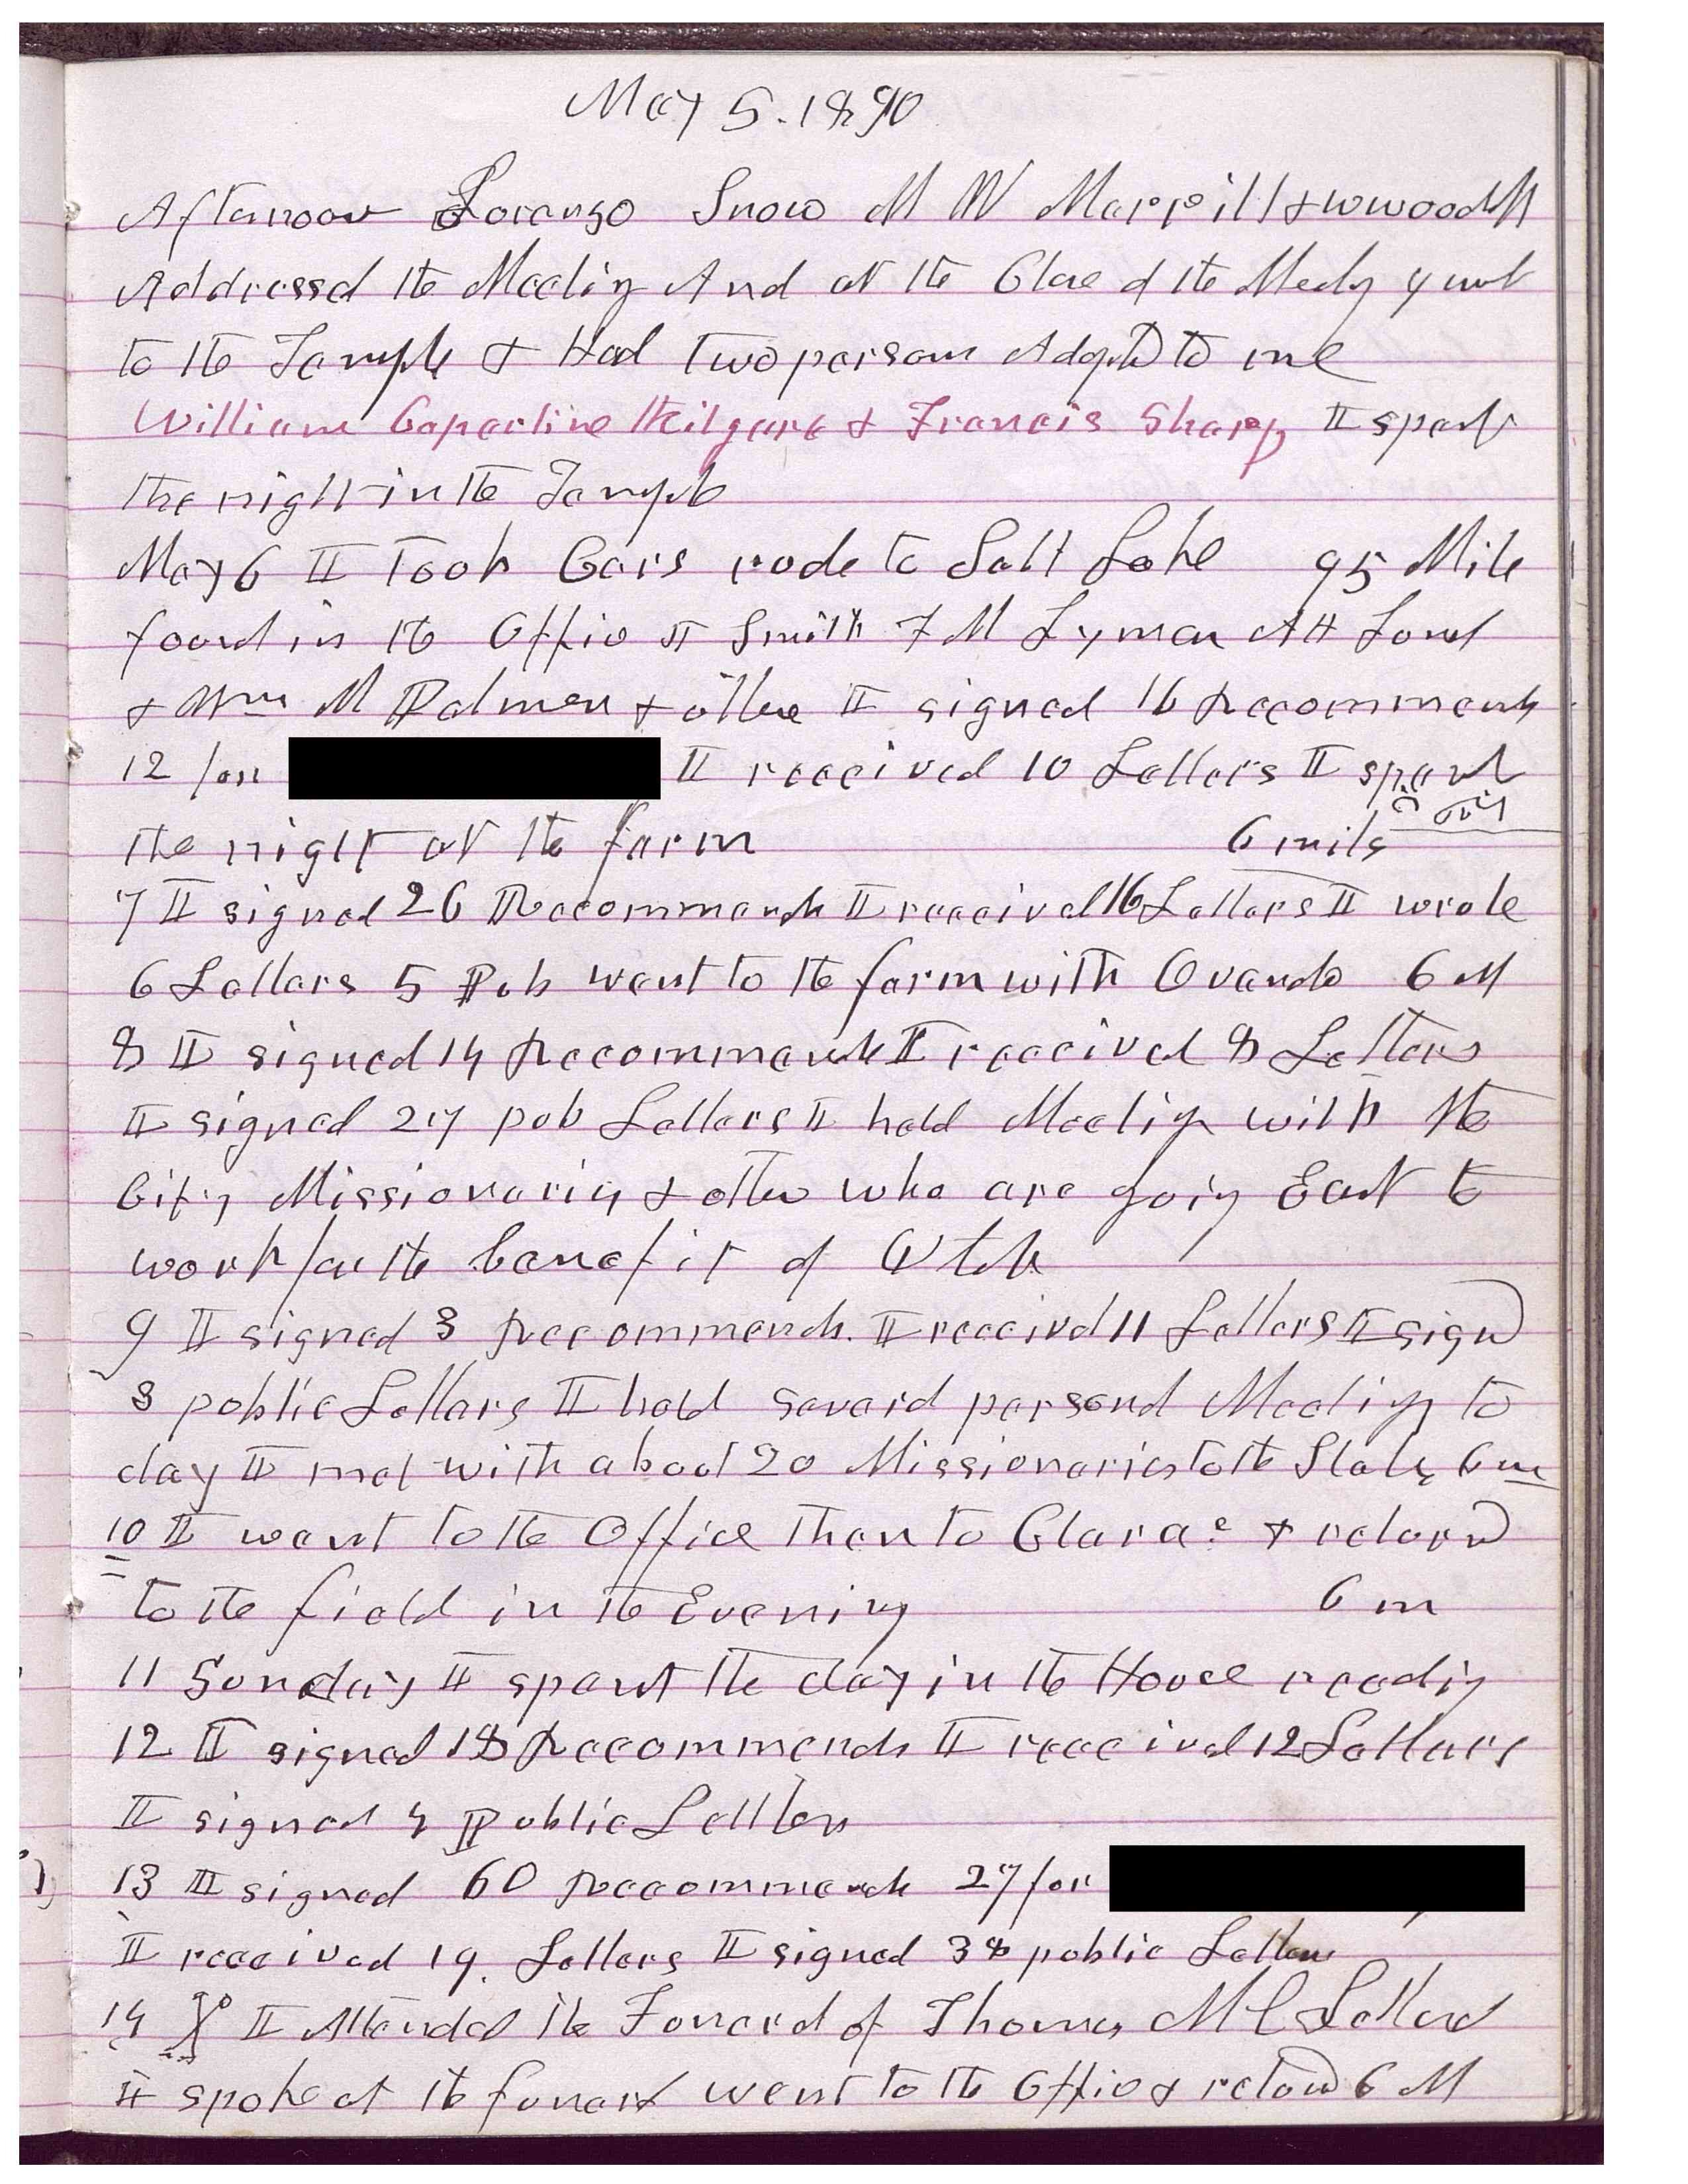 May 5. 1890
Afternoon Lorenzo Snow M W Merrill & W Woodruff
Addressed the Meeting And at the Close of the Meeting I went
to the Temple & Had two persons Adopted to me
William & Francis Sharp I spent
the night in the Temple
May 6 I Took Cars rode to Salt Lake 95 Mile
found in the Office Smith F M Lyman A H Lund
& Wm M Palmer & others I signed 16 Recommends
12 for I received 10 Letters I spent
the night at the farm 6 miles
7 I signed 26 Recommends I received 16 Letters I wrote
6 Letters 5 Pub went to the farm with Ovando 6 M
8 I signed 14 Recommends I received 8 Letters
I signed 27 pub Letters I held Meeting with the
City Missionaries & others who are going East to
work for the benefit of Utah
9 I signed 3 Recommends. I received 11 Letters I signed
3 public Letters I held several personal Meetings to
day I met with about 20 Missionaries to the States 6 m
10 I went to the Office then to Claras & returned
to the field in the Evening 6 m
11 Sunday I spent the day in the House reading
12 I signed 18 Recommends I received 12 Letters
I signed 4 Public Letters
13 I signed 60 Recommends 27 for
I received 19. Letters I signed 38 public Letters
14 I Attended the Funeral of Thomas
I spoke at the funeral went to the Office & returned 6 M